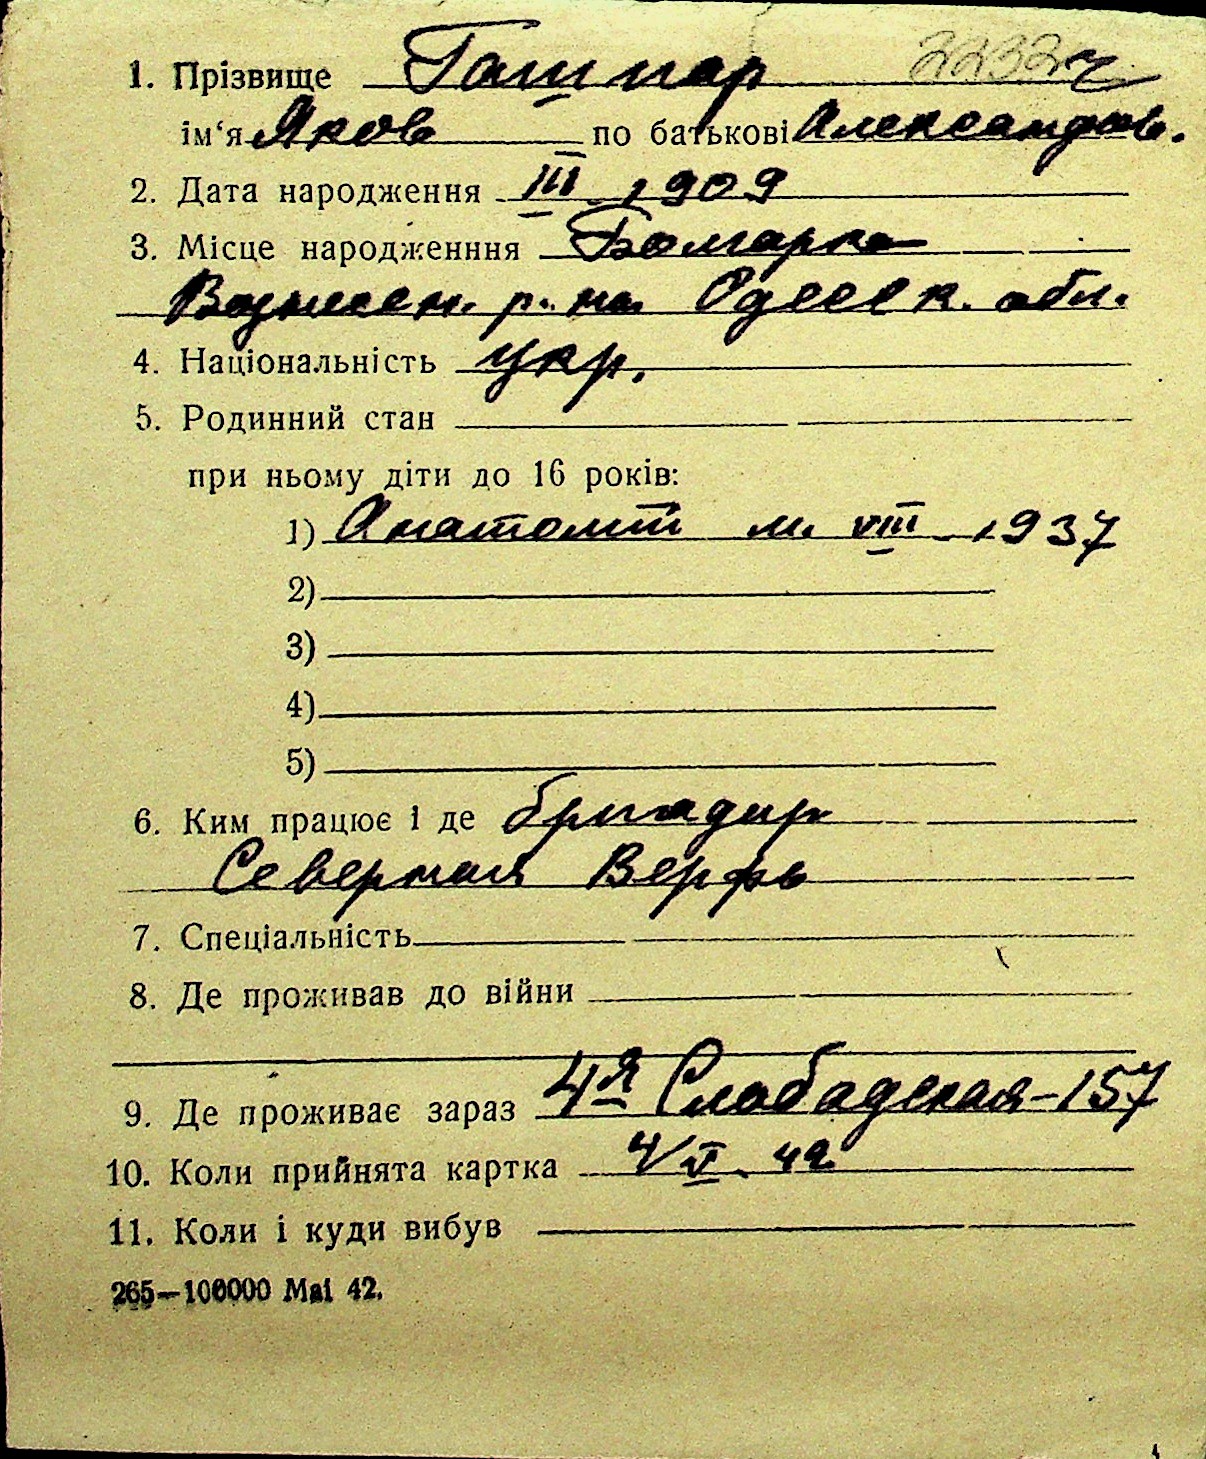 1. Прізвище Гашпар
ім‘я Яков по батькові Александров.
2. Дата народження III 1909
3. Місце народженння Болгарка
Вознесен. р. на Одесск. обл.
4. Національність укр.
5. Родинний стан
при ньому діти до 16 років:
1) Анатолій м. VIII - 1937
2)
3)
4)
5)
6. Ким працює і де бригадир
Северная Верфь
7. Спеціальність
8. Де проживав до війни
9. Де проживає зараз 4я Слободская-157
10. Коли прийнята картка 4/V. 42
11. Коли і куди вибув
265—100000 Mai 42.